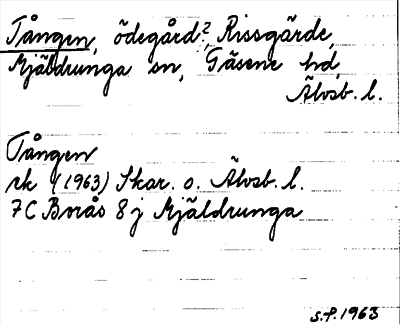 Tången, ödegård?, Rissgärde,
Mjäldrunga sn, Gäsene hd,
Älvsb. l.
Tången
rk (1963) Skar. o. Älvsb. l.
7C Borås 8j Mjäldrunga
s.f. 1963